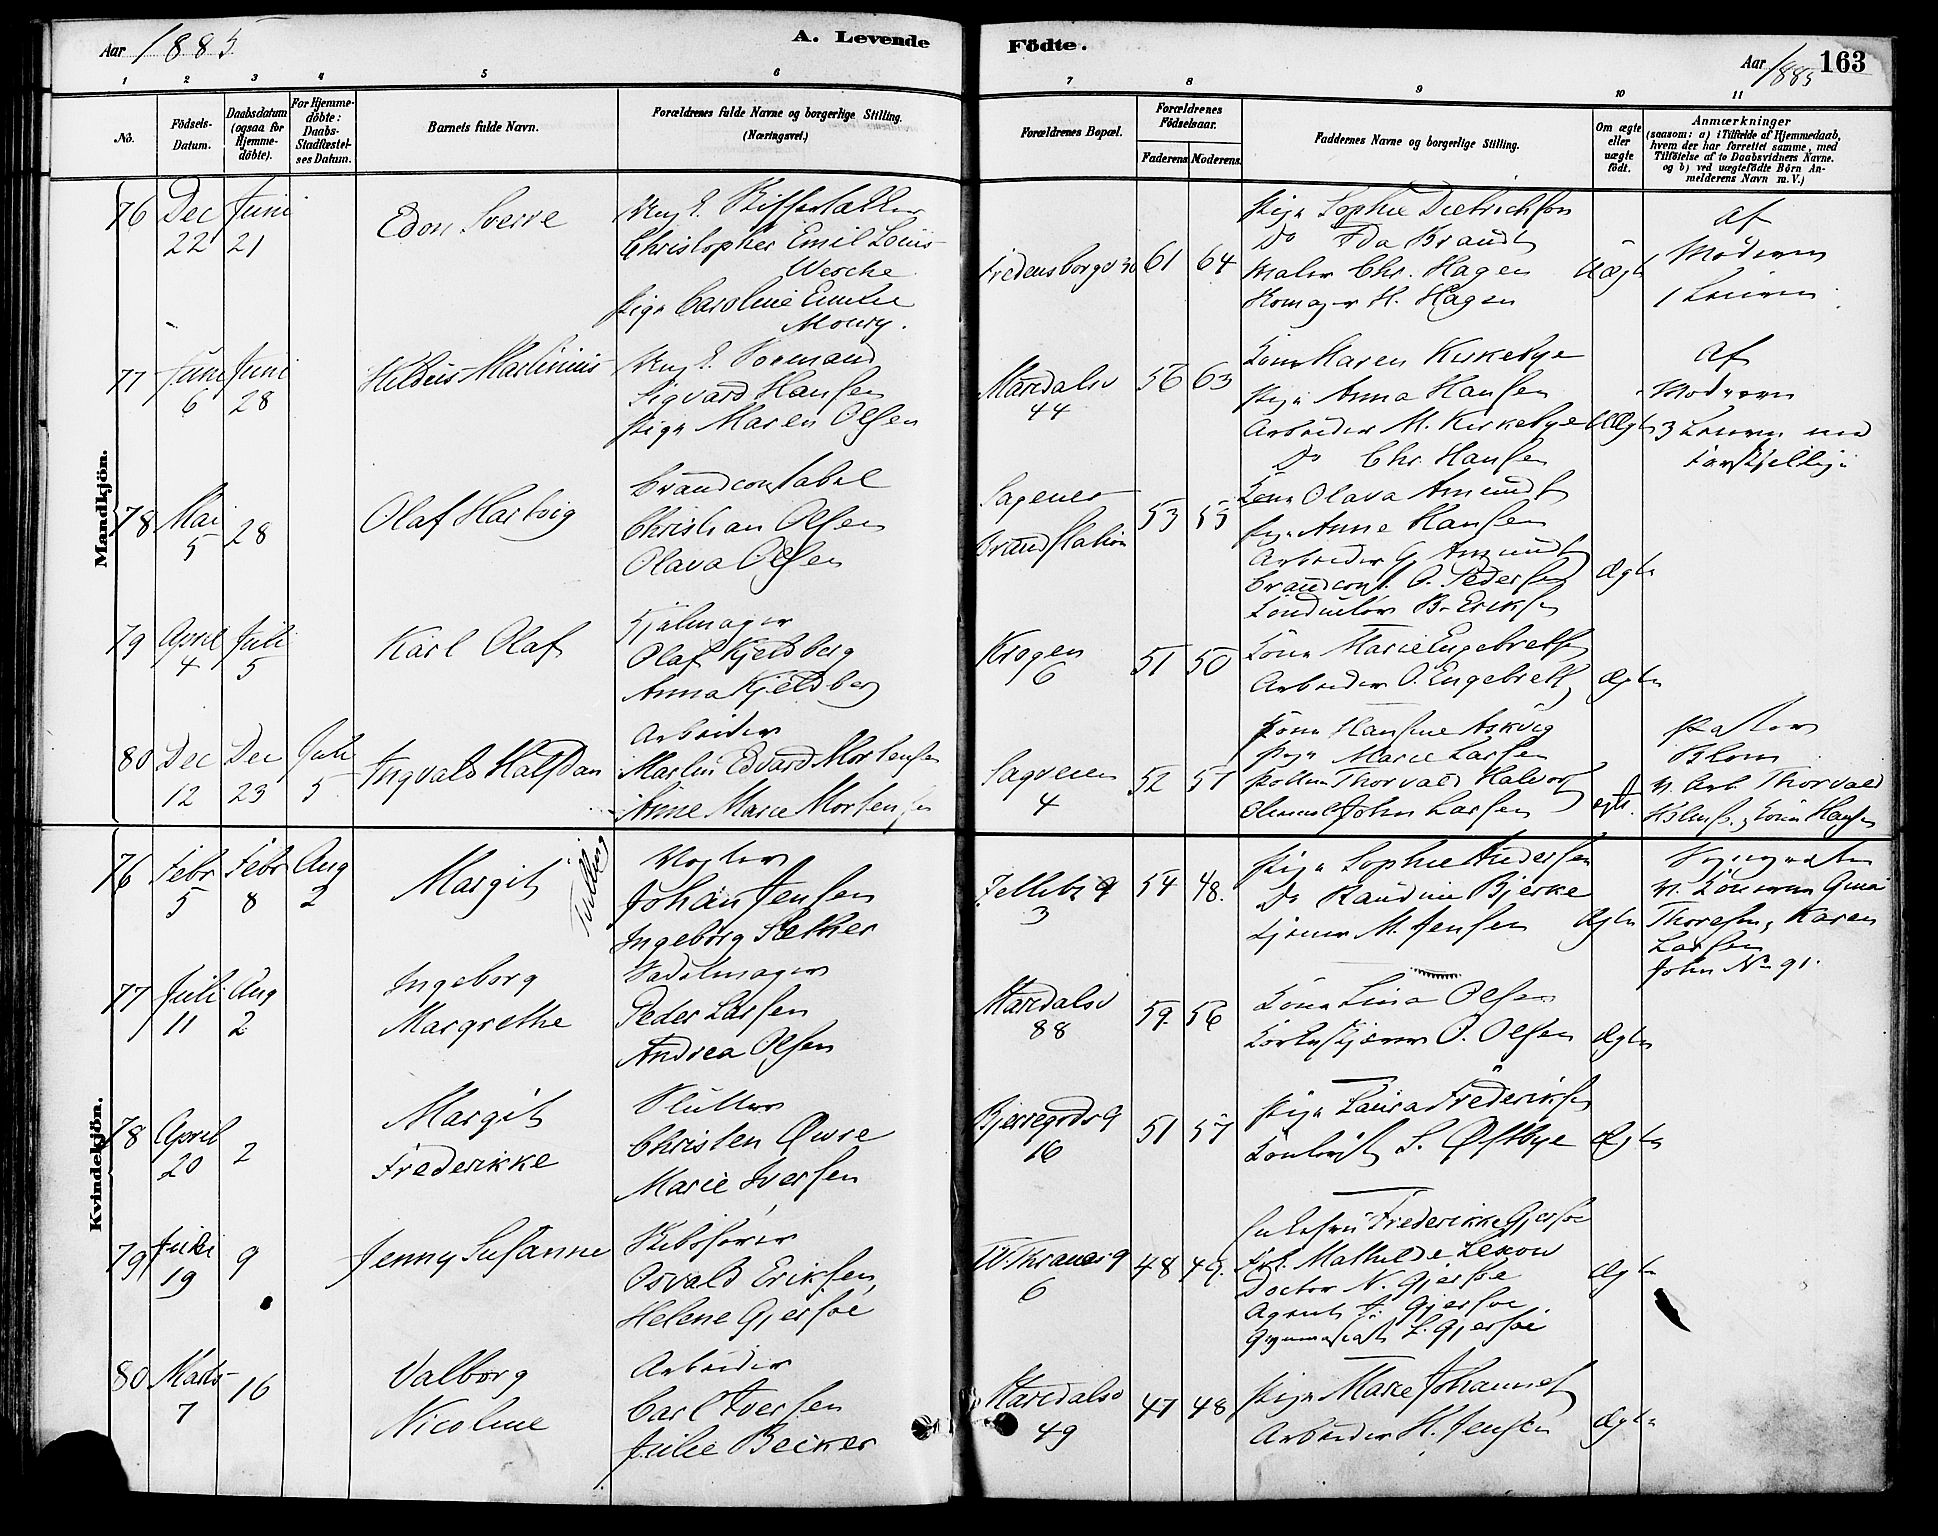 Aar 1885.
A. Levende
Födte.
Aar 1885
163
1 2 3 4 5 6 7 8 9 10 11
No.
Födsels-Datum.
Daabsdatum (ogsaa for Hjemme-döbte).
For Hjemme-döbte: Daabs-Stadfæstel-ses Datum.
Barnets fulde Navn.
Forældrenes fulde Navne og borgerlige Stilling. (Næringsvei.)
Forældrenes Bopæl.
Forældrenes Födselsaar.
Faderens Moderens
Faddernes Navne og borgerlige Stilling.
Om ægte eller uægte födt.
Anmærkninger
(saasom: a) i Tilfælde af Hjemmedaab, hvem der har forrettet samme, med Tilföielse af to Daabsvidners Navne. og b) ved uægtefödte Børn An-melderens Navn m.V.)
Mandkjön.
76 Dec 22 Juni 21
Edon Sverre
Christopher Emil Louis
Wesche
Pige Caroline Emilie
Fredensborgv 30
61 64
Pige Sophie Dietrichson
Do Ida Brandt
Maler Chr. Hagen
H. Hagen
Uægt
Af
Moderen
77 Juni 6 Juni 28
Martinius
Ung E.
Sigvard Hansen
Pige Maren Olsen
Maridalsv
44
56 63
Kone Maren Kirkebye
Pige Anna Hansen
Arbeider M. Kirkebye
Do Chr. Hansen
Uægt
Af
Moderen
78 Mai 5 28
Olaf Hartvig
Brandconstabel
Christian Olsen
Olava Olsen
Sagenes
Brandstation
53 55
Kone Olava Amunds
Pige Anne Hansen
Arbeider G. Amunds
Brandconst. O. Pedersen
Konduktör B. Eriksen
Ægte
79 April 4 Juli 5
Karl Olaf
Hjulmager
Olaf Kjeldberg
Anna Kjeldberg
Krogen
6
51 50
Kone Marie Engebretsen
Arbeider O. Engebrets
Ægte
80 Dec 12 Dec 23 Juli 5
Ingvald Halfdan
Arbeider
Martin Edvard Mortensen
Anne Marie Mortensen
Sagveien
4
52 57
Kone Hansine Askvig
Pige Marie Larsen
Thorvald Halvors
John Larsen
Ægt.
Pastor
Blom
Arb. Thorvald
Kone Hansen
Kvindekjön.
76 Febr 5 Febr 8 Aug 2
Margit
Tvilling
Johan Jensen
Ingeborg Sæther
3
54 48.
Pige Sophie Andersen
Do Randine Bjerke
M. Jensen
Ægte
Thoresen, Karen
Larsen
John No 91.
77 Juli 11 Aug 2
Ingeborg
Margrethe
Sadelmager
Peder Larsen
Andrea Olsen
Maridalsv
88
59. 56
Kone Lina Olsen
O. Olsen
Ægte
78 April 20 2
Margit
Frederikke
Slutter
Christen Qvire
Marie Iversen
Bjerregrds g
16
51 57
Pige Laura Frederiksen
S. Østbye
Ægte
79 Juli 19 9
Jenny Susanne
Skibsfører
Osvald Eriksen,
Helene Gjersøe
W. Thranes g
6
48 49.
Frederikke Gjersøe
Frk. Mathilde Lexow
Doctor N. Gjersøe
Agent J. Gjersøe
Gymnasiast L. Gjersøe
Ægte
80 Marts 7 16
Valborg
Nicoline
Arbeider
Carl Iversen
Julie Becker
Maridalsv
49
47 48
Pige Marie Johannes
Arbeider H. Jensen
Ægte